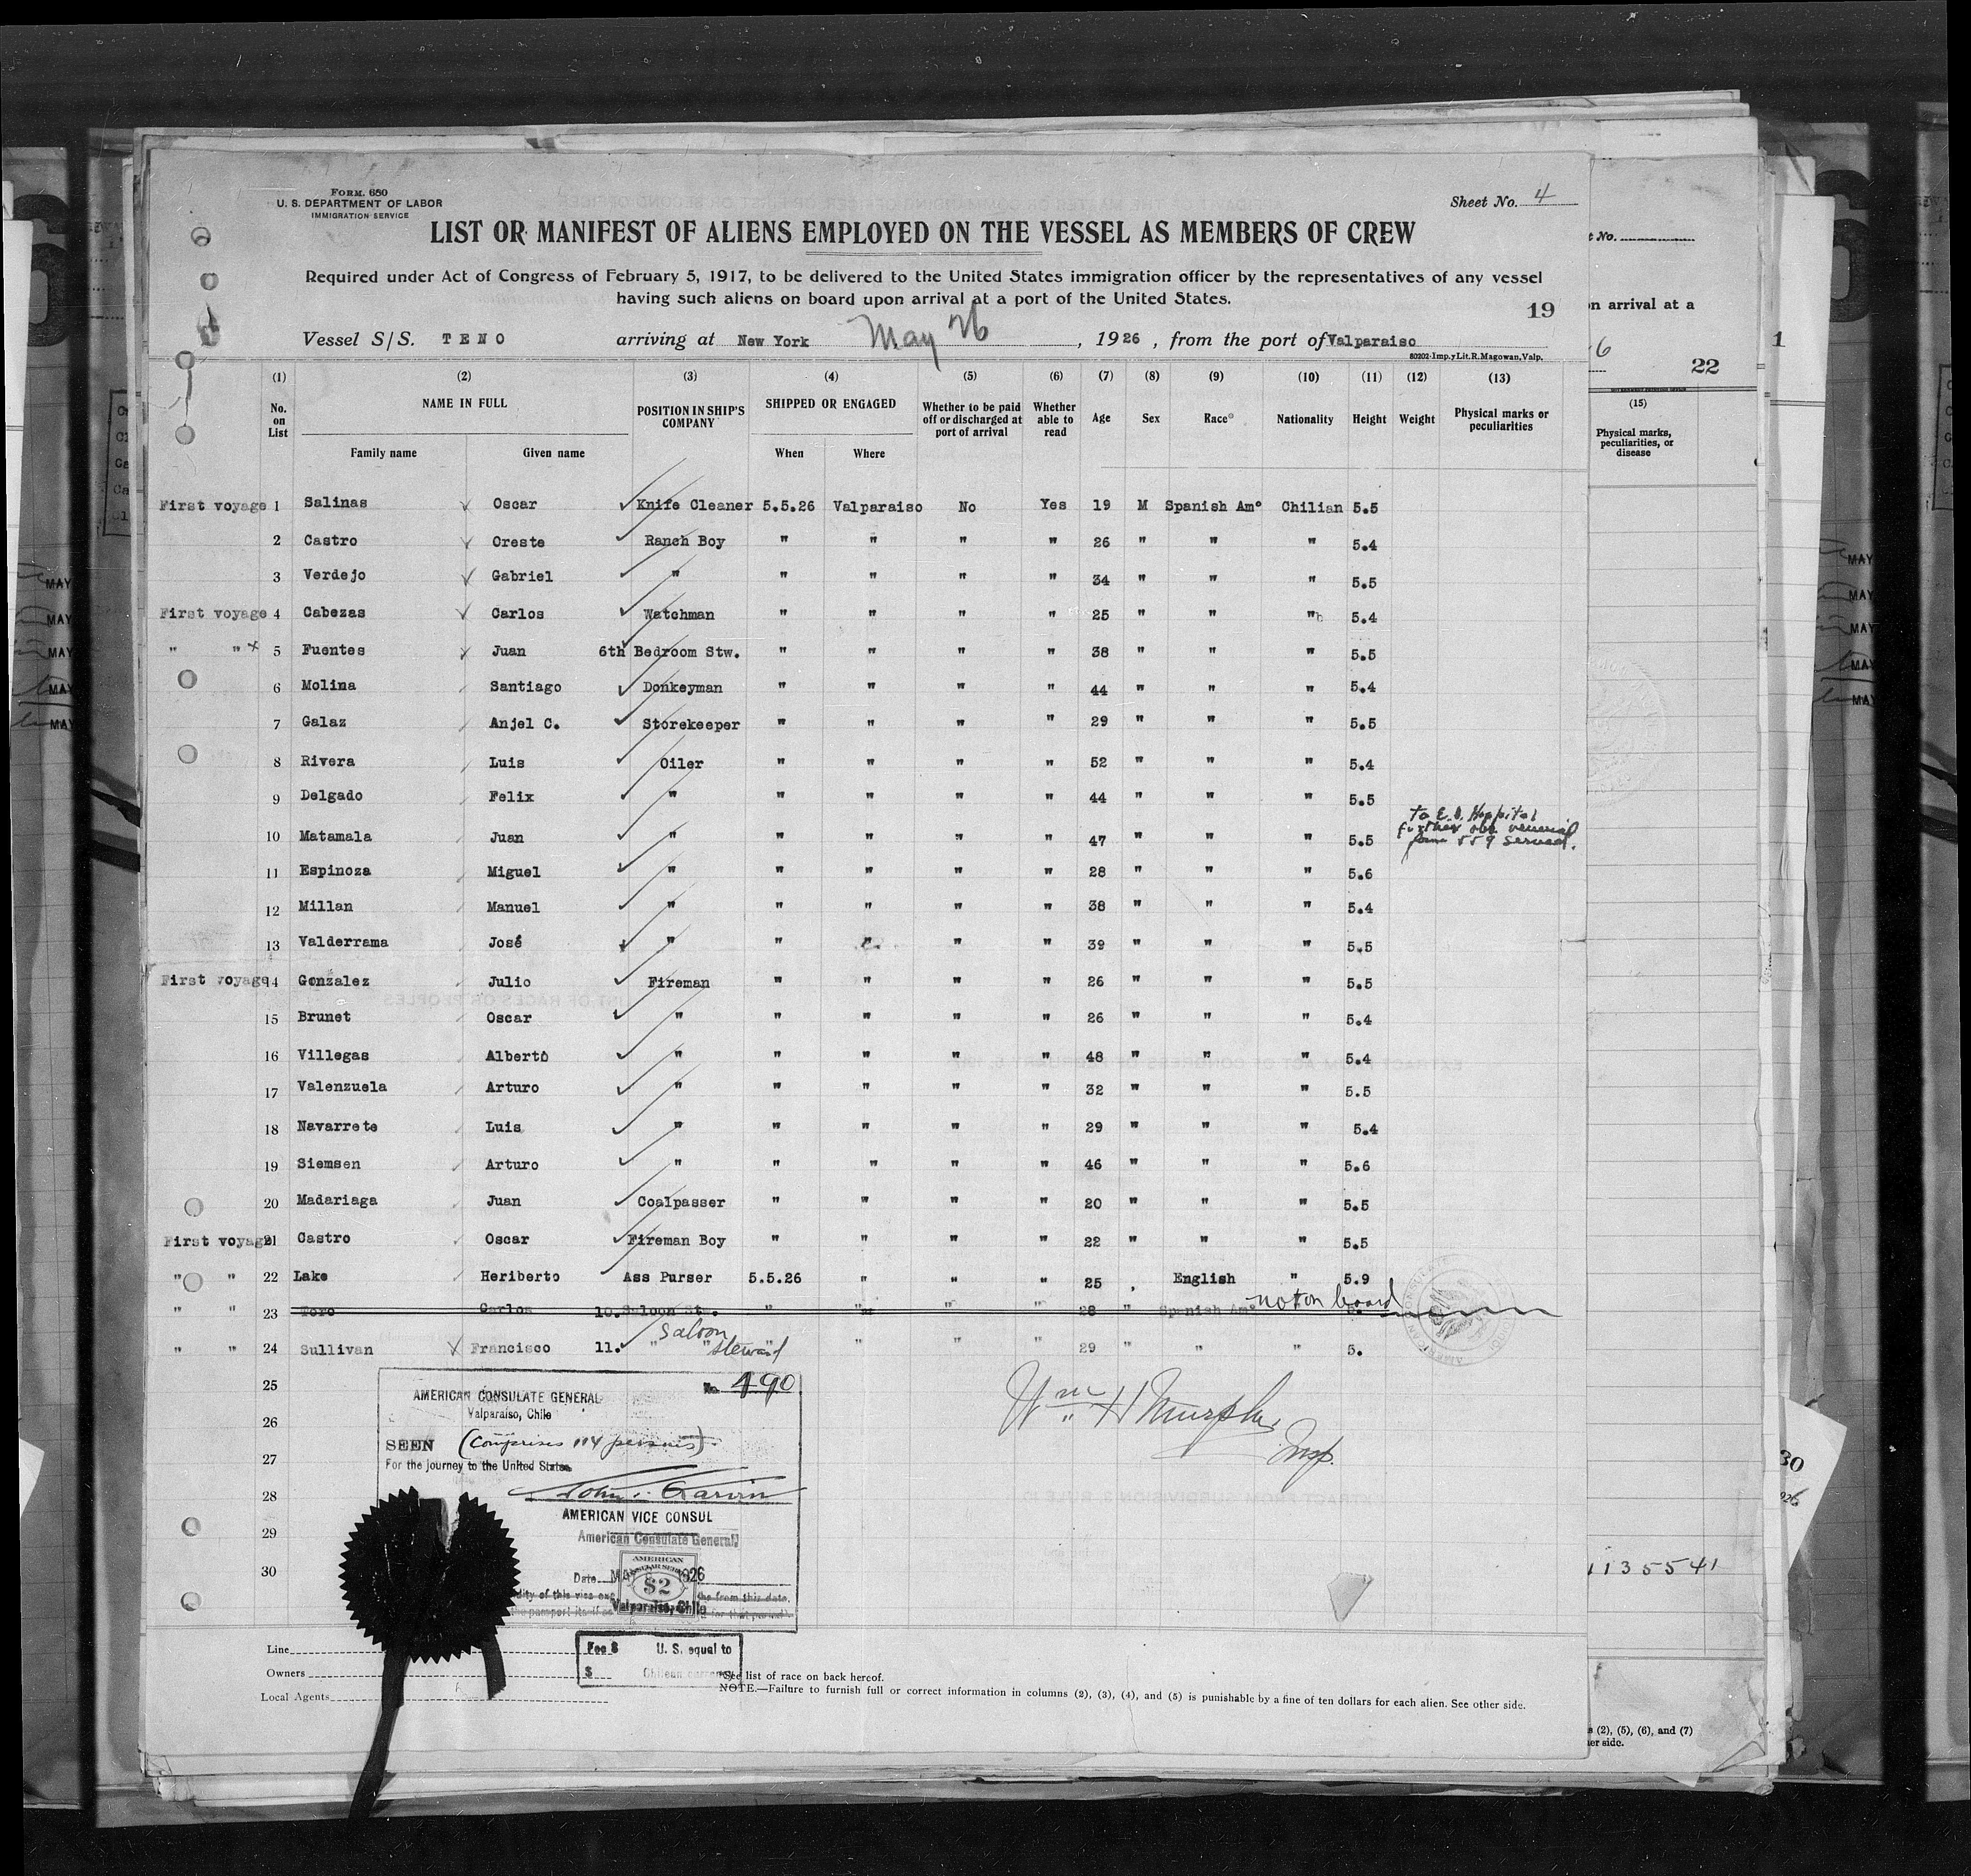 FORM. 680
U. S. DEPARTMENT OF LABOR
IMMIGRATION SERVICE
Sheet No. 4
LIST OR MANIFEST OF ALIENS EMPLOYED ON THE VESSEL AS MEMBERS OF CREW
Required under Act of Congress of February 5, 1917, to be delivered to the United States immigration officer by the representatives of any vessel
having such aliens on board upon arrival at a port of the United States.
19
Vessel S/S. TENO arriving at New York May 26, 1926, from the port of Valparaiso
80202-Imp.yLit.R.Magowan,Valp.
(1) (2) (3) (4) (5) (6) (7) (8) (9) (10) (11) (12) (13)
No. on List NAME IN FULL POSITION IN SHIP'S COMPANY SHIPPED OR ENGAGED Whether to be paid off or discharged at port of arrival Whether able to read Age Sex Race* Nationality Height Weight Physical marks or peculiarities
Family name Given name When Where
First voyage 1 Salinas Oscar Knife Cleaner 5.5.26 Valparaiso No Yes 19 M Spanish Am° Chilian 5.5
2 Castro Oreste Ranch Boy " " " " 26 " " " 5.4
3 Verdejo Gabriel " " " " " 34 " " " 5.5
First voyage 4 Cabezas Carlos Watchman " " " " 25 " " " 5.4
" " x 5 Fuentes Juan 6th Bedroom Stw. " " " " 38 " " " 5.5
6 Molina Santiago Donkeyman " " " " 44 " " " 5.4
7 Galaz Anjel C. Storekeeper " " " " 29 " " " 5.5
8 Rivera Luis Oiler " " " " 52 " " " 5.4
9 Delgado Felix " " " " " 44 " " " 5.5
10 Matamala Juan " " " " " 47 " " " 5.5 to E.I. Hospital
further obs. venereal
form 559 served.
11 Espinoza Miguel " " " " " 28 " " " 5.6
12 Millan Manuel " " " " " 38 " " " 5.4
13 Valderrama José " " " " " 39 " " " 5.5
First voyage 14 Gonzalez Julio Fireman " " " " 26 " " " 5.5
15 Brunet Oscar " " " " " 26 " " " 5.4
16 Villegas Alberto " " " " " 48 " " " 5.4
17 Valenzuela Arturo " " " " " 32 " " " 5.5
18 Navarrete Luis " " " " " 29 " " " 5.4
19 Siemsen Arturo " " " " " 46 " " " 5.6
20 Madariaga Juan Coalpasser " " " " 20 " " " 5.5
First voyage 21 Castro Oscar Fireman Boy " " " " 22 " " " 5.5
" " 22 Lake Heriberto Ass Purser 5.5.26 " " " 25 English " 5.9
" " 23 Toro Carlos 10. Saloon Stw. " " " " 28 " Spanish Am° not on board
" " 24 Sullivan Francisco 11. " saloon " steward " " " " 29 " " " 5.
25
26
27
28
29
30
No. 490
AMERICAN CONSULATE GENERAL
Valparaiso, Chile
SEEN (Comprises 114 persons)
For the journey to the United States
AMERICAN VICE CONSUL
American Consulate General
Date MAY 1926
AMERICAN
$2
Valparaiso, Chile
Wm H Murphy
Insp.
Line
Owners
Local Agents
Fee $ U. S. equal to
$ Chilean currency
*See list of race on back hereof.
NOTE.—Failure to furnish full or correct information in columns (2), (3), (4), and (5) is punishable by a fine of ten dollars for each alien. See other side.
No.
on arrival at a
6
22
(15)
Physical marks,
peculiarities, or
disease
1135541
(2), (5), (6), and (7)
er side.
1
30
MAY
MAY
MAY
MAY
MAY